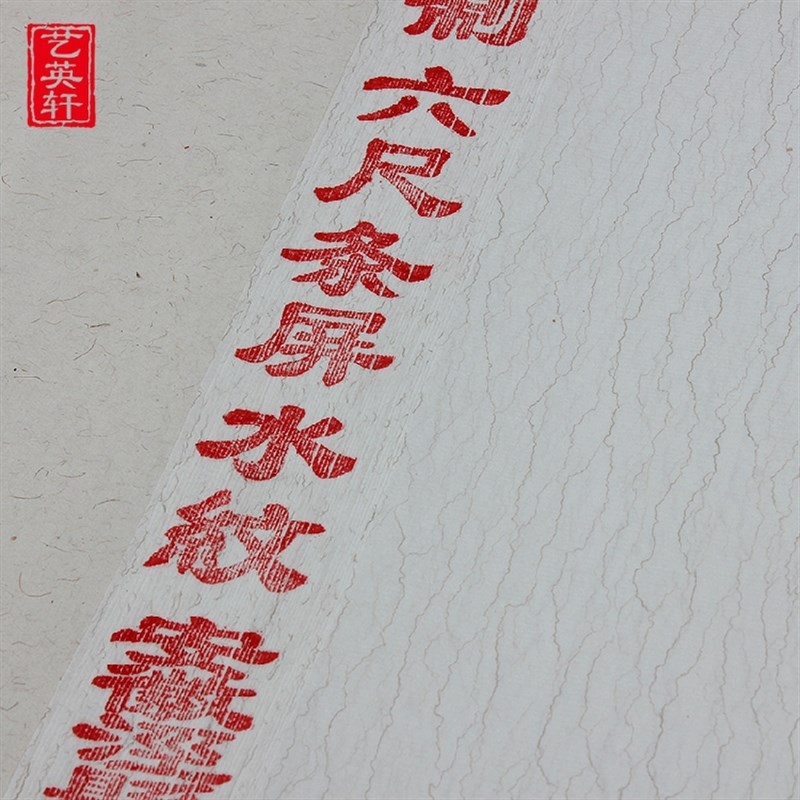 艺英轩
制六尺条屏水纹